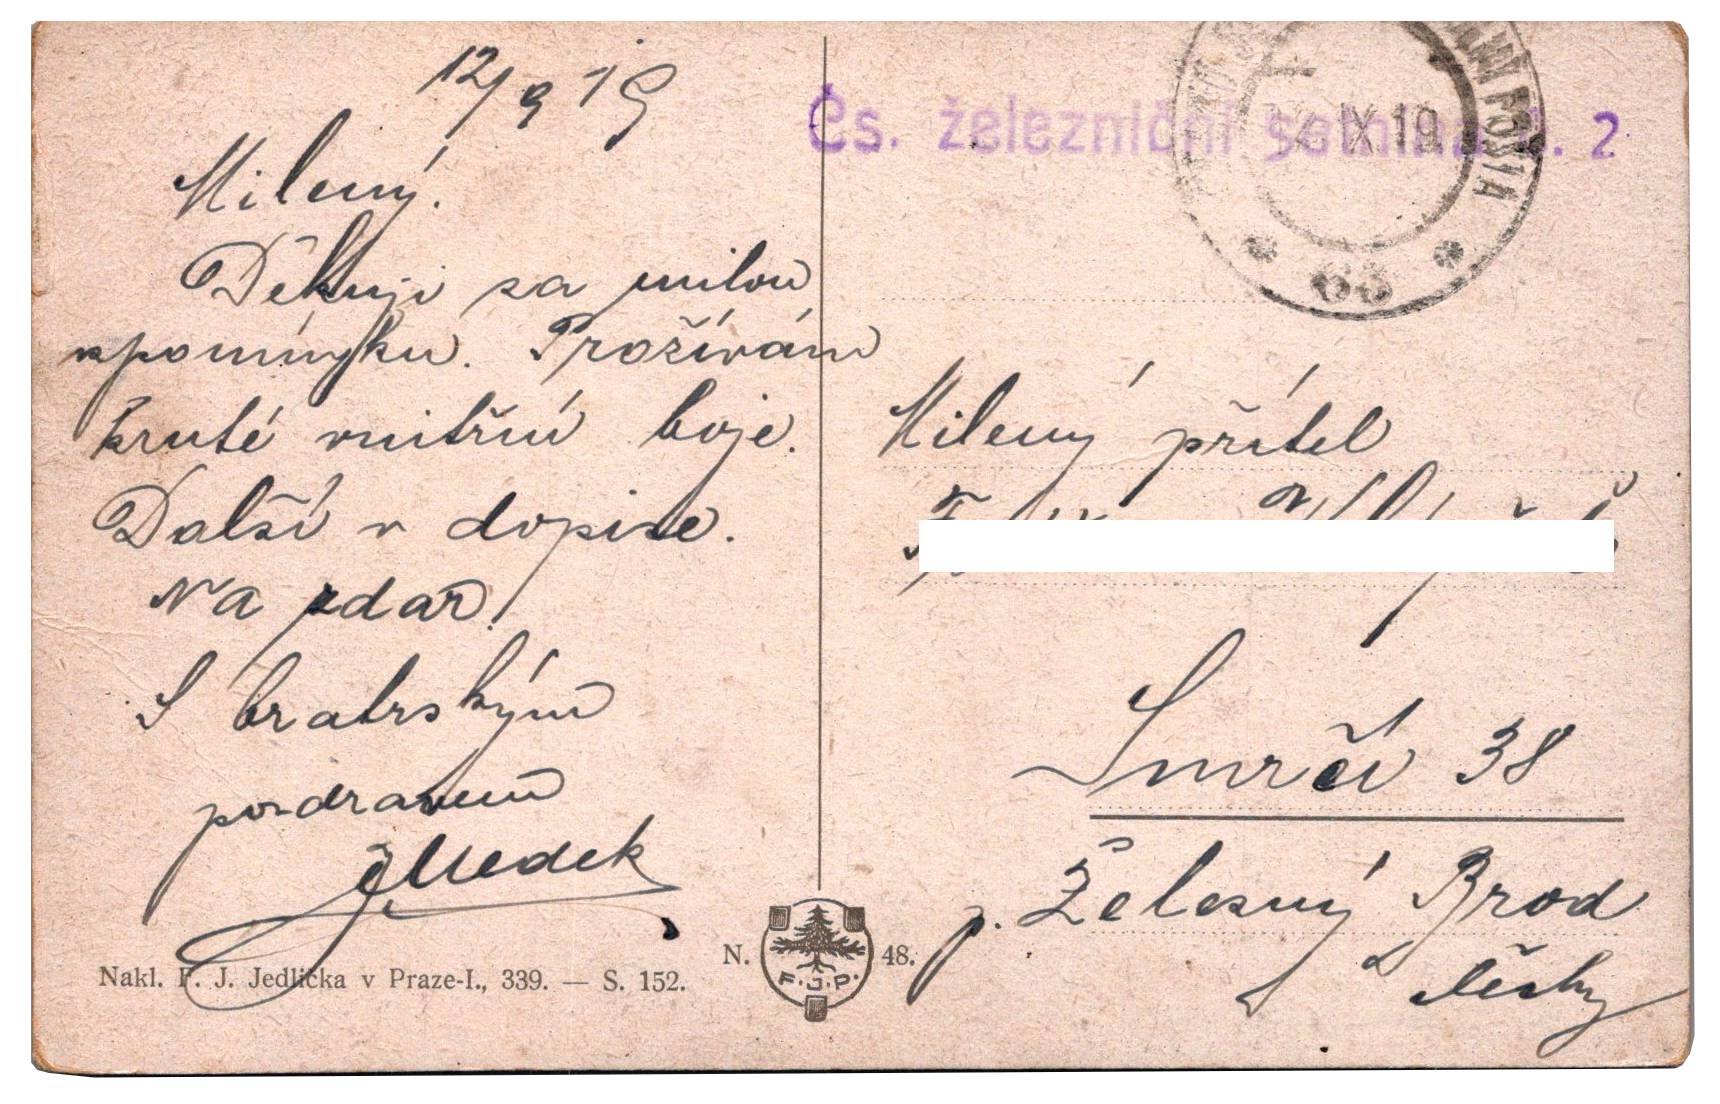 12/9 19
Milený.
Děkuji za milou
vpomínku. Prožívám
kruté vnitřní boje.
Další v dopise.
Na zdar!
S bratrským
pozdravem
JMedek
Nakl. F. J. Jedlička v Praze-I., 339. — S. 152.
N. 48.
F.J.P.
Čs. železniční setnina č. 2
IX 19
POLNÍ POŠTA
63
Milený přítel
Smrčí 38
p. Železný Brod
Čechy